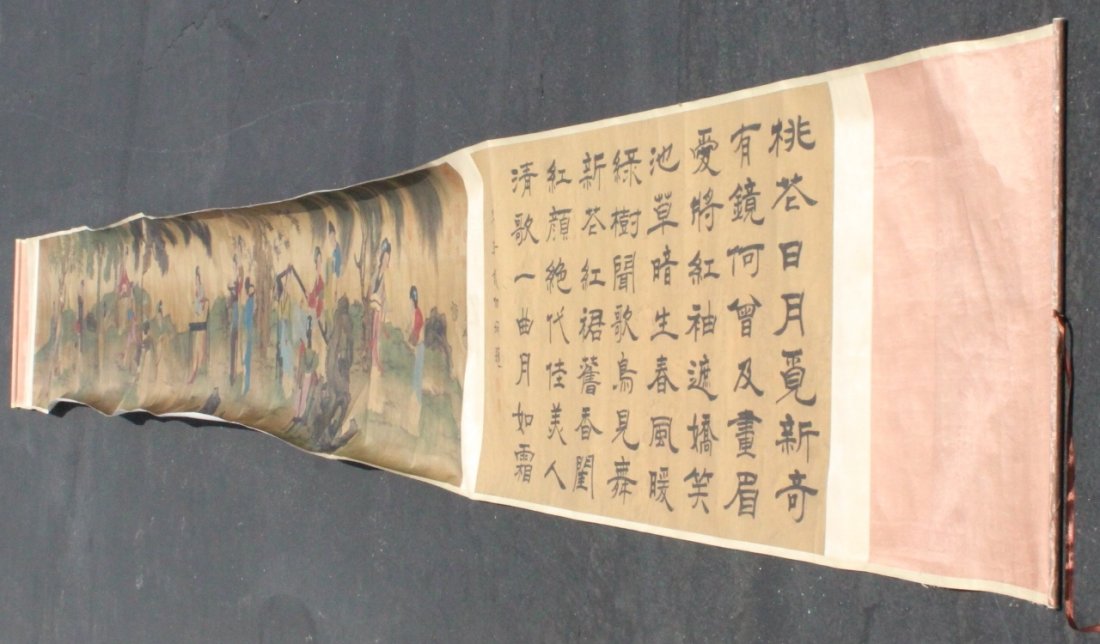 桃花日月覓新奇
有鏡何曾及畫眉
愛將紅袖遮嬌笑
池草暗生春風暖
綠樹聞歌鳥見舞
新花紅裙舊香閨
紅顏絕代佳美人
清歌一曲月如霜